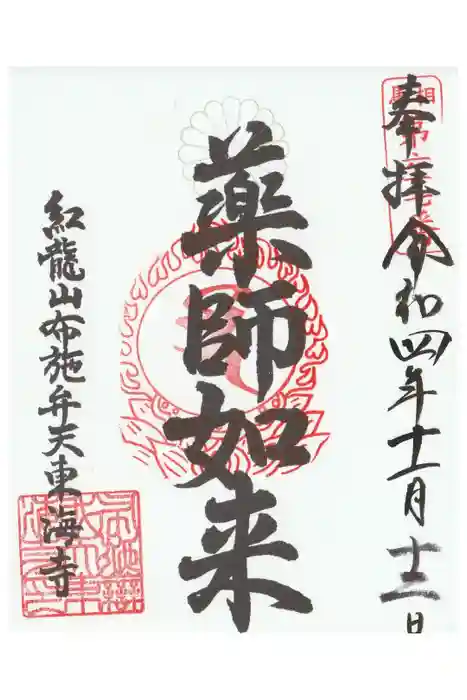 奉拝 令和四年十一月十三日
薬師如来
紅龍山布施弁天東海寺